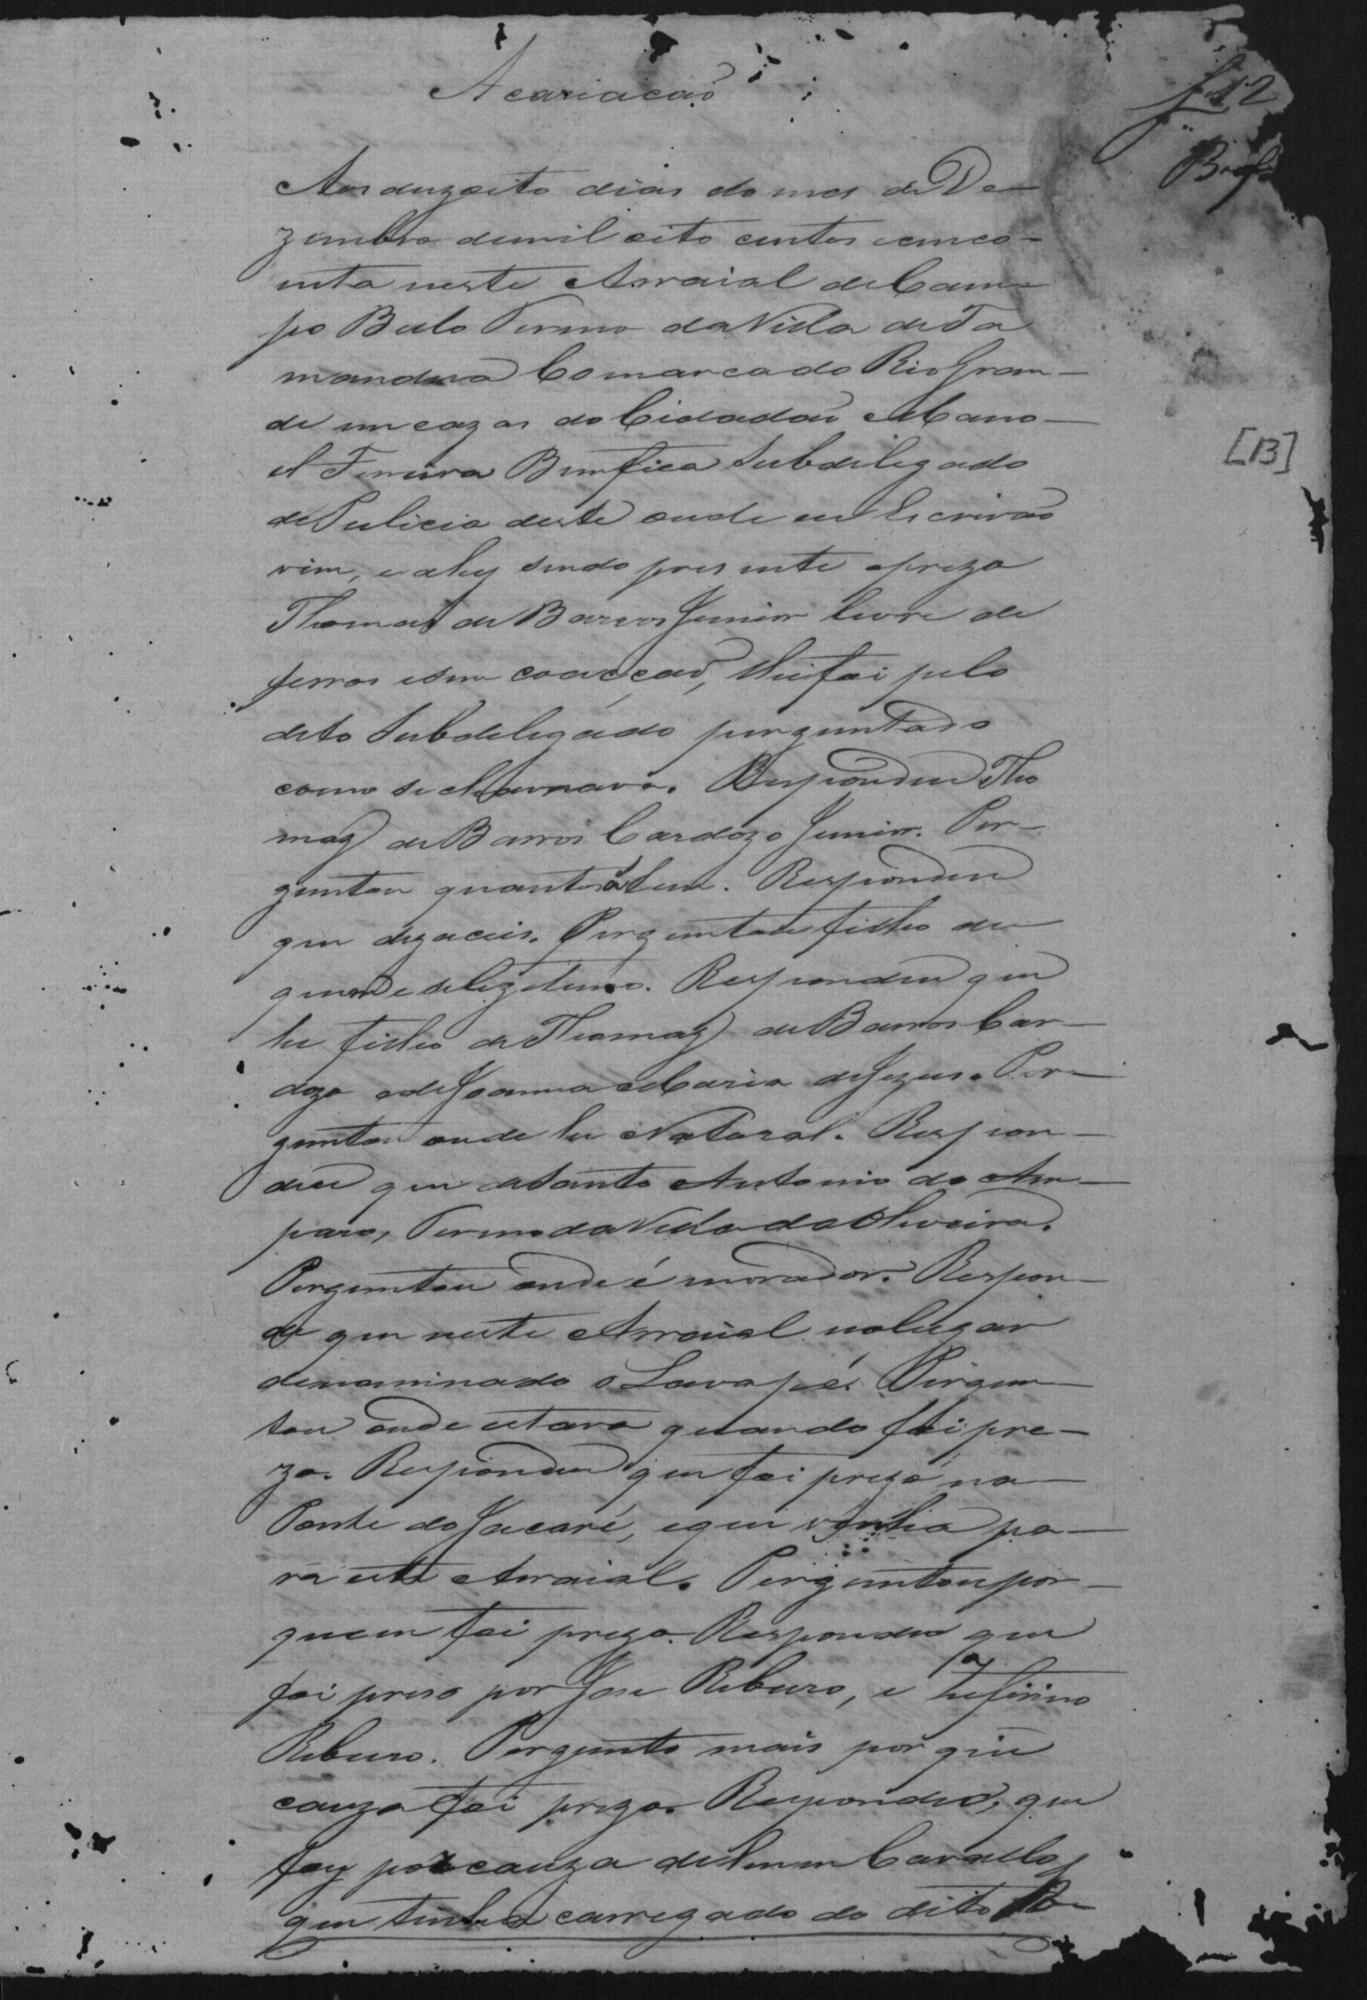 Acariacaõ
f 12
Aos dezoito dias do mes de De-
zembro de mil oito centos e cinco-
enta neste Arraial de Cam-
po Bello Termo da Villa de Ta
mandua Comarca do Rio Gran-
de em cazas do Cidadaõ Mano-
el Ferreira Bemfica Subdelegado
[13]
de Pulicia deste onde eu Escrivaõ
vim, e ahy sendo prezente o prezo
Thomas de Barros Junior livre de
ferros e sem coaccaõ, lhe foi pelo
dito Subdelegado perguntado
como se chamava. Respondeu Tho
maz de Barros Cardozo Junior. Per-
guntou quantos a tem. Respondeu
que dezaceis. Perguntou filho de
quem e se legitimo. Respondeu que
he filho de Thomaz de Barros Car-
dozo e de Joanna Maria de Jezus. Per-
guntou onde he Natural. Respon-
deu que de Santo Antonio do Am-
paro, Termo da Villa da Oliveira.
Perguntou onde é morador. Respon-
do que neste Arraial no lugar
denominado o Lavapé. Pergun-
tou onde estava quando foi pre-
zo. Respondeu que foi prezo na
Ponte do Jacaré, e que vinha pa-
ra este Arraial. Perguntou por
quem foi prezo. Respondeu que
foi preso por Jose Ribeiro, e Zeferino
Ribeiro. Pergunto mais por que
cauza foi prezo. Respondeu, que
foy por cauza de hum Cavallo,
que tinha carregado do dito Re-